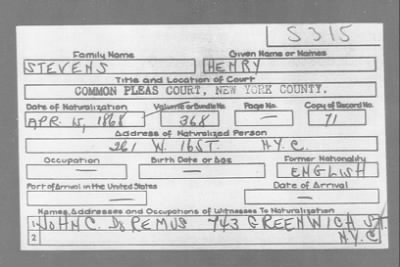 S315
Family Name Given Name or Names
STEVENS HENRY
Title and Location of Court
COMMON PLEAS COURT, NEW YORK COUNTY.
Date of Naturalization Volume or Bundle No. Page No. Copy of Record No.
APR. 15, 1868 368 — 71
Address of Naturalized Person
261 W. 16 ST. N.Y.C.
Occupation Birth Date or Age Former Nationality
— — ENGLISH
Port of Arrival in the United States Date of Arrival
— —
Names, Addresses and Occupations of Witnesses To Naturalization
1 JOHN C. DO REMUS 743 GREENWICH ST.
2 N.Y.C.